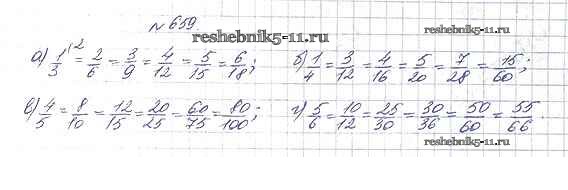 №659
reshebnik5-11.ru
а) 1/3^(12 = 2/6 = 3/9 = 4/12 = 5/15 = 6/18; б) 1/4 = 3/12 = 4/16 = 5/20 = 7/28 = 15/60;
в) 4/5 = 8/10 = 12/15 = 20/25 = 60/75 = 80/100; г) 5/6 = 10/12 = 25/30 = 30/36 = 50/60 = 55/66.
reshebnik5-11.ru